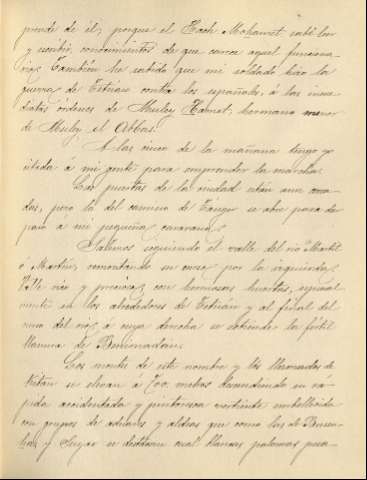 prende de él, porque el Hach Mohamet sabe leer
y escribir, conocimientos de que carece aquel funciona-
rio. También he sabido que mi soldado hizo la
guerra de Tetuán contra los españoles, á las inme-
diatas órdenes de Muley Hamet, hermano menor
de Muley el Abbas.
A las cinco de la mañana tengo ya
lista á mi gente para emprender la marcha.
Las puertas de la ciudad están aun cerra-
das, pero la del camino de Tánger se abre para dar
paso á mi pequeña caravana.
Salimos siguiendo el valle del río Martil
ó Martín, remontando su curso por la izquierda.
Valle rico y precioso, con hermosas huertas, especial
mente en los alrededores de Tetuán y al final del
curso del río, á cuya derecha se extiende la fértil
llanura de Benimadan.
Los montes de este nombre y los llamados de
se elevan á 700 metros descendiendo en rá-
pida accidentada y pintoresca vertiente embellecida
con grupos de aduares y aldeas que como las de
y se destacan cual blancas palomas